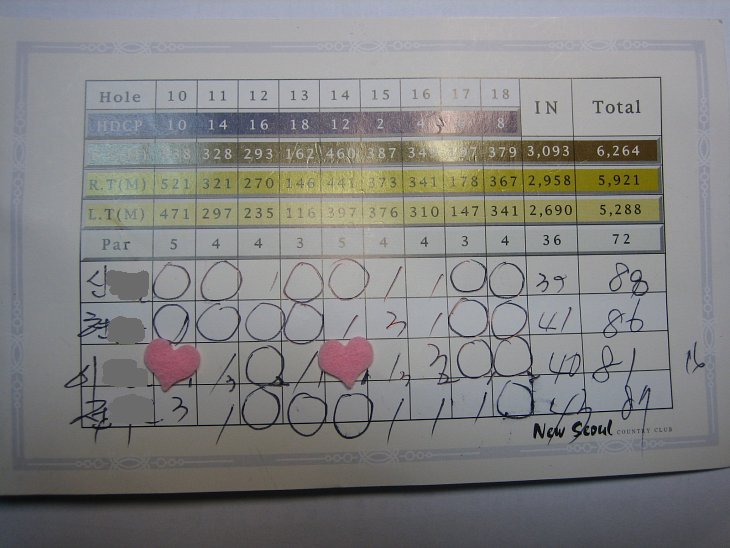 Hole 10 11 12 13 14 15 16 17 18 IN Total
HDCP 10 14 16 18 12 2 4 8
328 293 162 460 387 379 3,093 6,264
R.T(M) 521 321 270 146 441 373 341 178 367 2,958 5,921
L.T(M) 471 297 235 116 397 376 310 147 341 2,690 5,288
Par 5 4 4 3 5 4 4 3 4 36 72
O O 1 O O 1 1 O O 39 88
O O O O 1 3 1 O O 41 86
1 O 1 1 3 O O 40 81 16
3 1 O O O 1 1 1 O 43 87
New Seoul COUNTRY CLUB